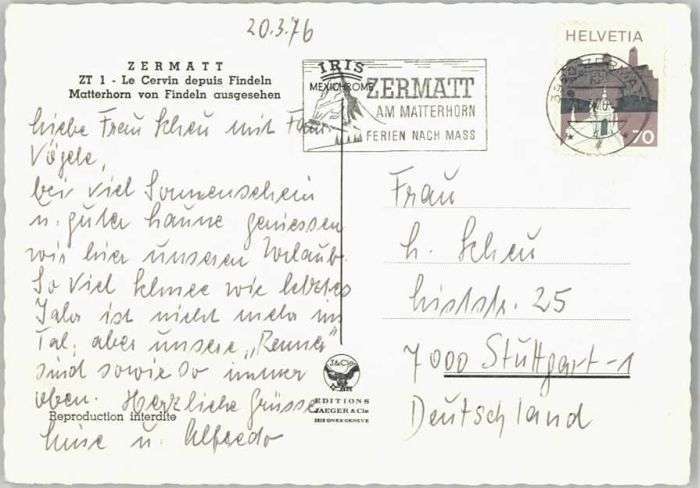 20.3.76
ZERMATT
ZT 1 - Le Cervin depuis Findeln
Matterhorn von Findeln ausgesehen
IRIS
MEXICHROME
ZERMATT
AM MATTERHORN
FERIEN NACH MASS
HELVETIA
70
Liebe Frau Scheu mit Frau
Vögele,
bei viel Sonnenschein
u. guter Laune geniessen
wir hier unseren Urlaub.
So viel Schnee wie letztes
Jahr ist nicht mehr im
Tal, aber unsere „Renner"
sind sowieso immer
oben. Herzliche Grüsse
Luise u. Alfredo
Reproduction interdite
J&Cie
EDITIONS
JAEGER & Cie
1213 ONEX-GENEVE
Frau
L. Scheu
Lisztstr. 25
7000 Stuttgart-1
Deutschland